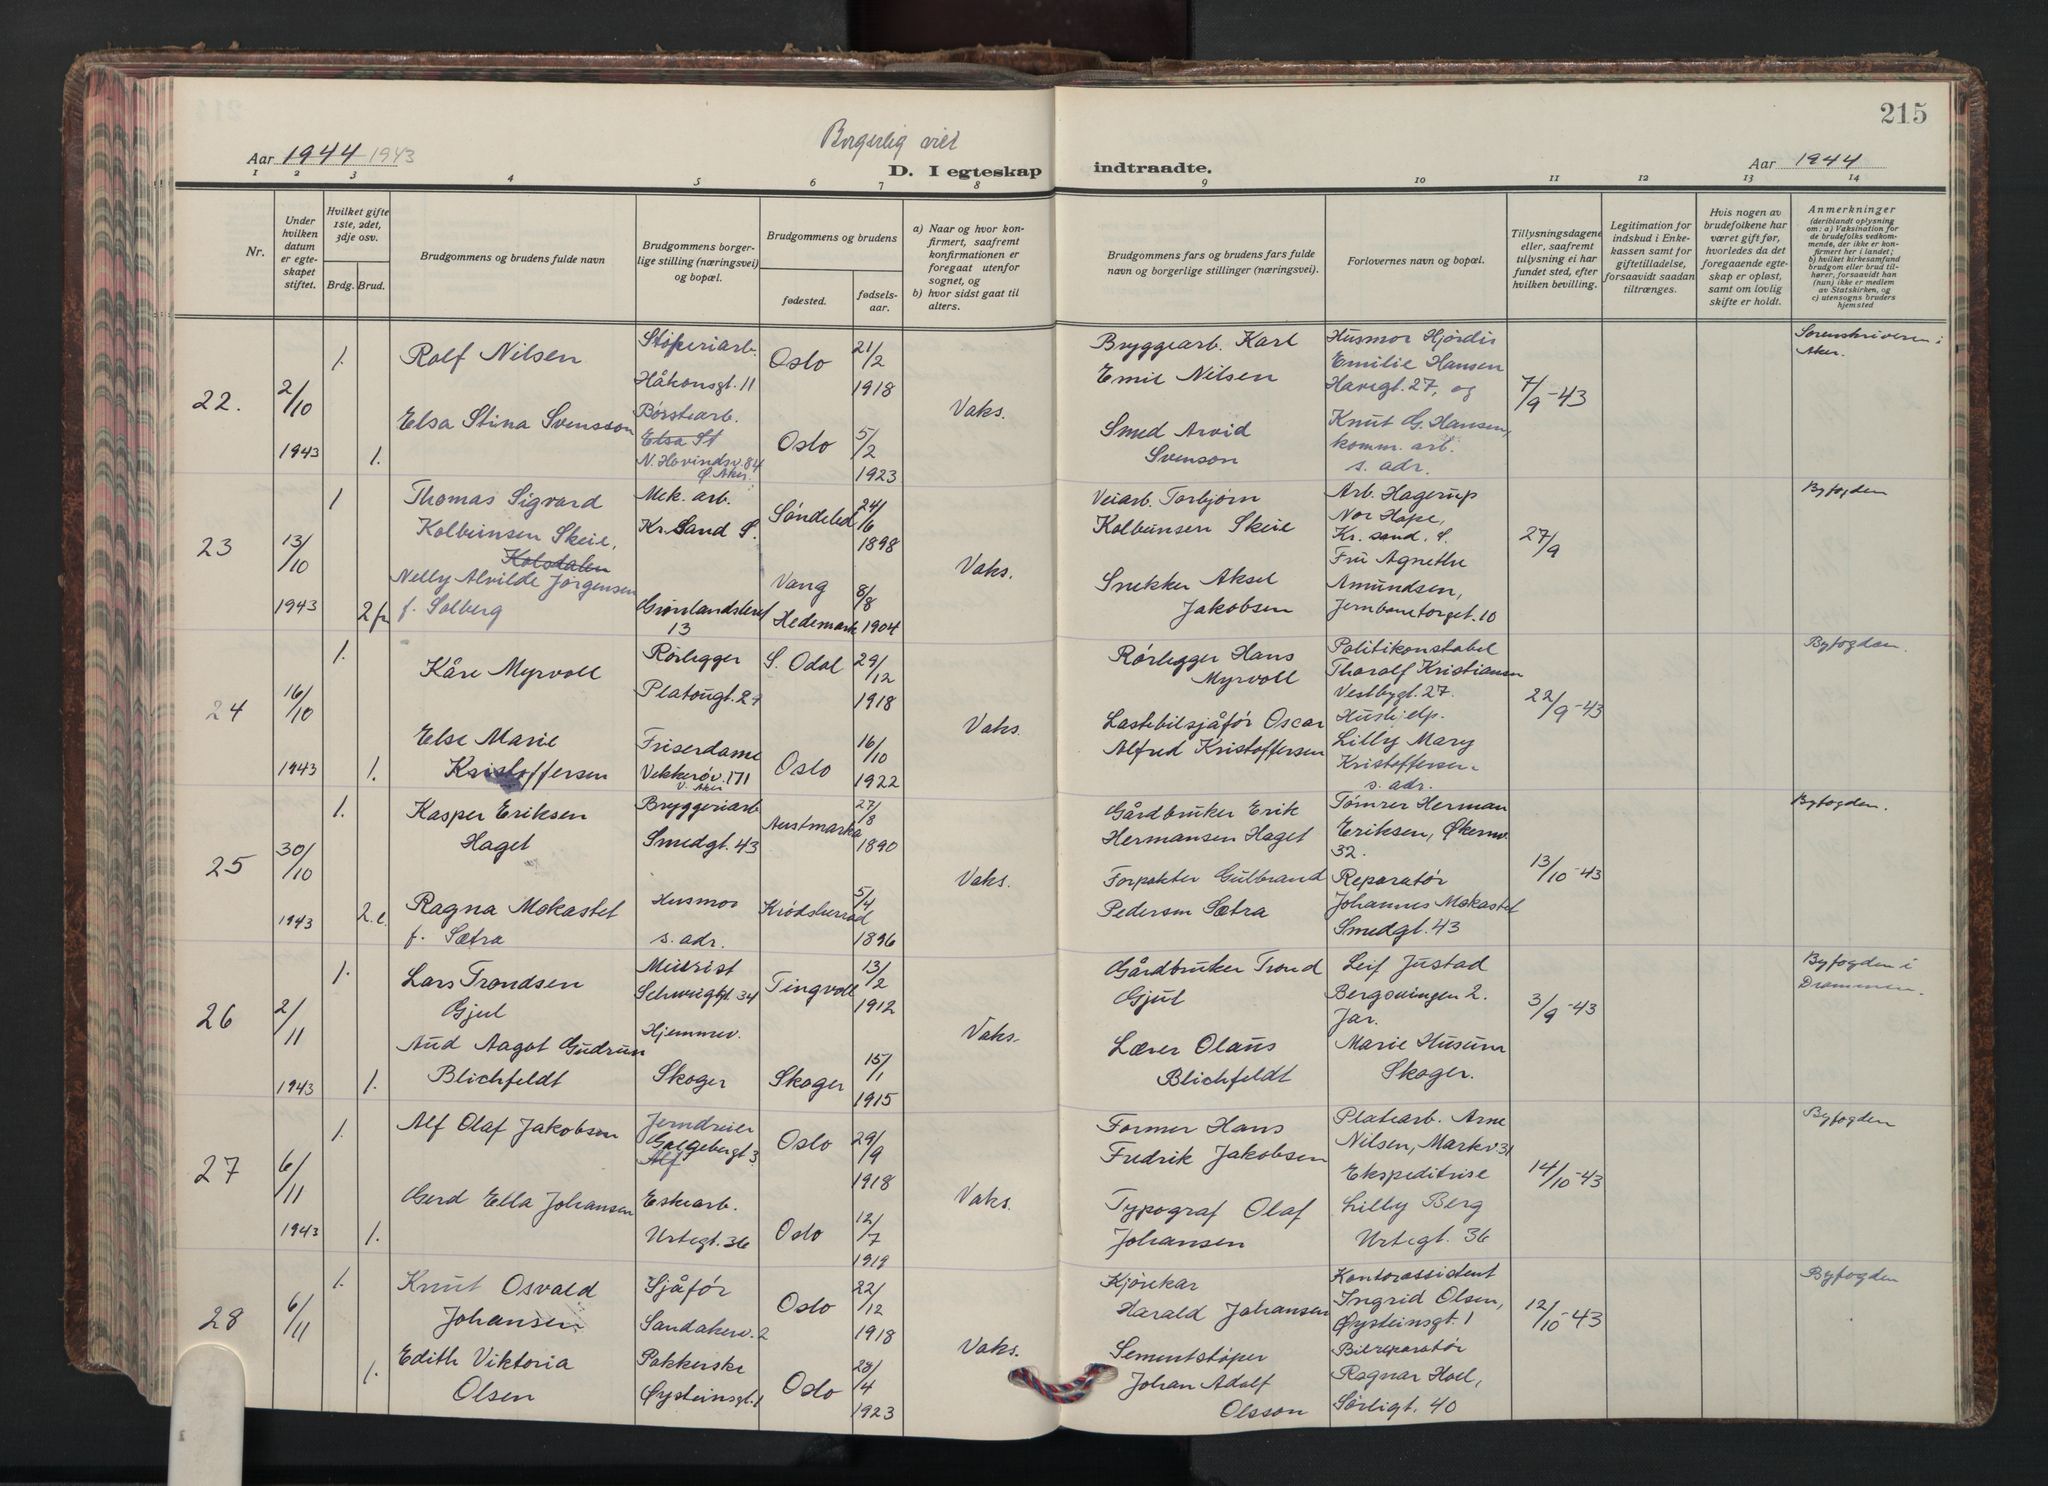 215
Borgerlig viet
Aar 1944 1943
D. I egteskap indtraadte.
Aar 1944
1 2 3 4 5 6 7 8 9 10 11 12 13 14
Nr.
Under hvilken datum er egteskapet stiftet.
Hvilket gifte 1ste, 2det, 3dje osv.
Brdg. Brud.
Brudgommens og brudens fulde navn
Brudgommens borgerlige stilling (næringsvei) og bopæl.
Brudgommens og brudens
fødested.
fødselsaar.
a) Naar og hvor konfirmert, saafremt konfirmationen er foregaat utenfor sognet, og
b) hvor sidst gaat til alters.
Brudgommens fars og brudens fars fulde navn og borgerlige stillinger (næringsvei).
Forlovernes navn og bopæl.
Tillysningsdagene eller, saafremt tillysning ei har fundet sted, efter hvilken bevilling.
Legitimation for indskud i Enkekassen samt for giftetilladelse, forsaavidt saadan tiltrænges.
Hvis nogen av brudefolkene har været gift før, hvorledes da det foregaaende egteskap er opløst, samt om lovlig skifte er holdt.
Anmerkninger
(deriblandt oplysning om: a) Vaksination for de brudefolks vedkommende, der ikke er konfirmert her i landet; b) hvilket kirkesamfund brudgom eller brud tilhører, forsaavidt han (hun) ikke er medlem av Statskirken, og c) utensogns bruders hjemsted
22.
2/10
1943
1.
Rolf Nilsen
Støperiarb.
Håkonsgt. 11
Oslo
21/2
1918
1.
Elsa Stina Svensson
Børstearb.
Elsa St
N. Hovindsv. 84
Ø. Aker.
Oslo
5/2
1923
Vaks.
Bryggearb. Karl
Emil Nilsen
Smed Arvid
Svenson
Husmor Hjördis
Emilie Hansen
Havegt. 27, og
Knut G. Hansen,
komm. arb.
s. adr.
7/9-43
Sorenskriveren i
Aker.
23
13/10
1943
1
Thomas Sigvard
Kolbeinsen Skeie,
Kolsdalen
Mek. arb.
Kr. Sand S.
Søndeled
24/6
1898
2 fr
Nelly Alvilde Jørgensen
f. Solberg
Grønlandsleret
13
Vang
Hedemark
8/8
1904
Vaks.
Veiarb. Torbjørn
Kolbeinsen Skeie
Snekker Aksel
Jakobsen
Arb. Hagerup
Nor Hope,
Kr. sand. S.
Fru Agnethe
Amundsen,
Jernbanetorget. 10
27/9
Byfogden
24
16/10
1943
1.
Kåre Myrvoll
Rørlegger
Platougt. 29
S. Odal
29/12
1918
1.
Else Marie
Kristoffersen
Friserdame
Vekkerøv. 171
V. Aker
Oslo
16/10
1922
Vaks.
Rørlegger Hans
Myrvoll
Lastebilsjåfør Oscar
Alfred Kristoffersen
Politikonstabel
Tharalf Kristiansen
Vestbygt. 27.
Hushjelp.
Lilly Mary
Kristoffersen
s. adr.
22/9-43
Byfogden.
25
30/10
1943
1.
Kasper Eriksen
Haget
Bryggeriarb
Smedgt. 43
Austmarka
27/8
1890
2.e.
Ragna Mokastet
f. Sætra
Husmor
s. adr.
Krødsherrad
5/4
1896
Vaks.
Gårdbruker Erik
Hermansen Haget
Forpakter Gulbrand
Pedersen Sætra
Tømrer Herman
Eriksen, Økernv.
32.
Reparatør
Johannes Mokastet
Smedgt. 43
13/10-43
Byfogden.
26
2/11
1943
1.
Lars Trondsen
Gjul
Musrist
Schweiggt 34
Tingvoll
13/2
1912
1.
Aud Aagot Gudrun
Blichfeldt
Hjemmev.
Skoger
Skoger
15/1
1915
Vaks.
Gårdbruker Trond
Gjul
Lærer Olaus
Blichfeldt
Leif Justad
Bergsvingen 2.
Jar.
Marie Husum
Skoger.
3/9-43
Byfogden i
Drammen.
27
6/11
1943
1.
Alf Olaf Jakobsen
Jerndreier
Galgebergt 3
Alf
Oslo
29/9
1918
1.
Gerd Ella Johansen
Eskearb.
Urtegt. 36
Oslo
12/7
1919
Vaks.
Former Hans
Fredrik Jakobsen
Typograf Olaf
Johansen
Platearb. Arne
Nilsen, Markv 31
Ekspeditrise
Lilly Berg
Urtegt. 36
14/10-43
Byfogden
28
6/11
1.
Knut Osvald
Johansen
Sjåfør
Sandakerv. 2
Oslo
22/12
1918
1.
Edith Viktoria
Olsen
Pakkerske
Øysteinsgt. 1
Oslo
28/4
1923
Vaks.
Kjørekar
Harald Johansen
Sementstøper
Johan Adolf
Olsson
Kontorassistent
Ingrid Olsen,
Øysteinsgt. 1
Bilreparatør
Ragnar Hoel,
Sørligt. 40
12/10-43
Byfogden